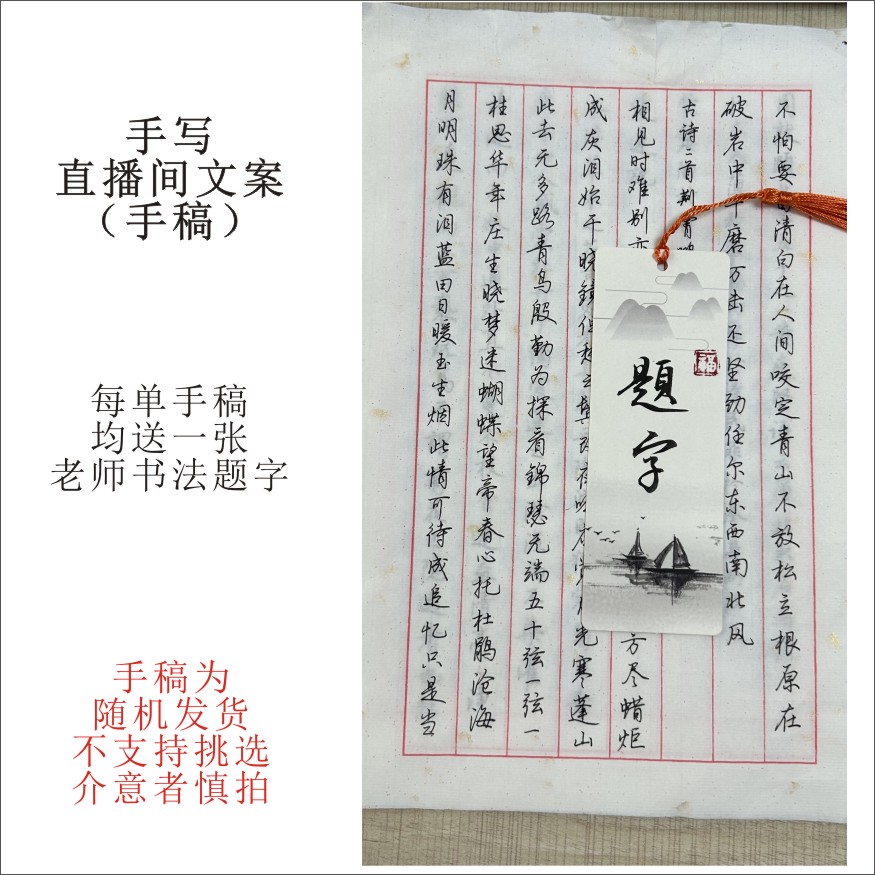 手写
直播间文案
（手稿）
每单手稿
均送一张
老师书法题字
手稿为
随机发货
不支持挑选
介意者慎拍
不怕要 清白在人间咬定青山不放松立根原在
破岩中千磨万击还坚劲任尔东西南北风
古诗二首
相见时难别亦 方尽蜡炬
成灰泪始干晓镜但 光寒蓬山
此去无多路青鸟殷勤为探看锦瑟无端五十弦一弦一
柱思华年庄生晓梦迷蝴蝶望帝春心托杜鹃沧海
月明珠有泪蓝田日暖玉生烟此情可待成追忆只是当
題字
福